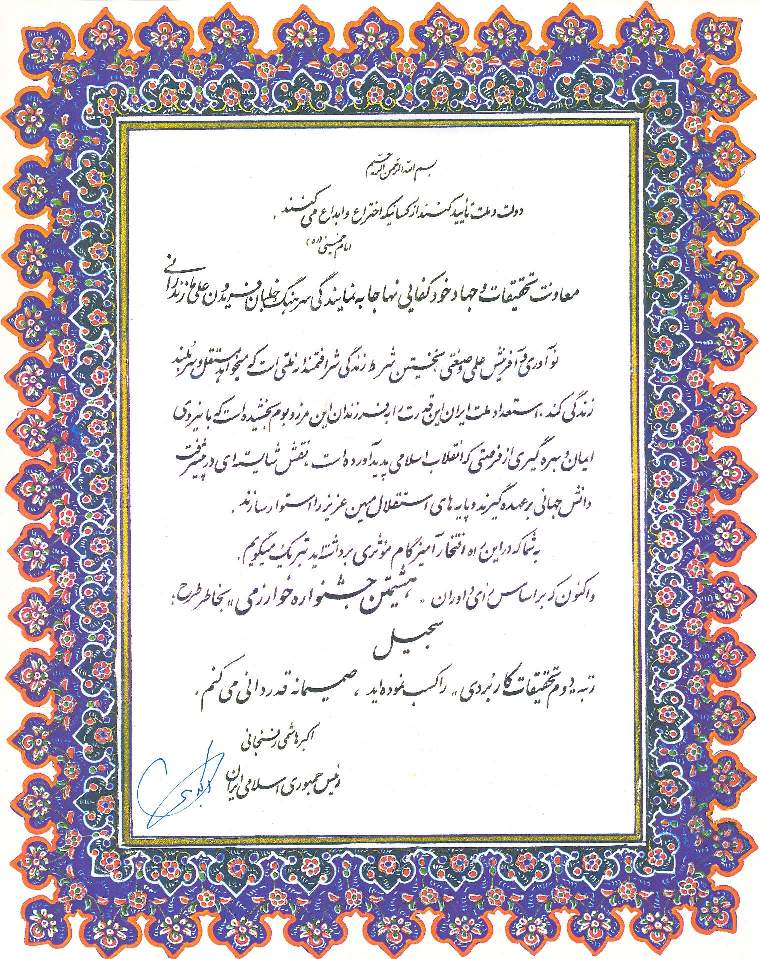 بسم الله الرحمن الرحیم
دولت و ملت تأیید کنند از کسانیکه اختراع و ابداع می کنند.
امام خمینی (ره)
معاونت تحقیقات و جهاد خودکفایی نهاجا به نمایندگی سرهنگ خلبان فریدون علی مازندرانی
نوآوری و آفرینش علمی و صنعتی نخستین شرط زندگی شرافتمندانه ملتی است که میخواهد مستقل و سربلند
زندگی کند. استعداد ملت ایران این قدرت را به فرزندان این مرز و بوم بخشیده است که با نیروی
ایمان و بهره گیری از فرصتی که انقلاب اسلامی پدید آورده است، نقش شایسته ای در پیشرفت
دانش جهانی بر عهده گیرند و پایه های استقلال میهن عزیز را استوار سازند.
به شما که در این راه افتخارآمیز گام مؤثری برداشته اید تبریک میگویم.
و اکنون که بر اساس رأی داوران «هشتمین جشنواره خوارزمی» بخاطر طرح:
سجیل
رتبه «دوم تحقیقات کاربردی» را کسب نموده اید، صمیمانه قدردانی می کنم.
اکبر هاشمی رفسنجانی
رئیس جمهوری اسلامی ایران